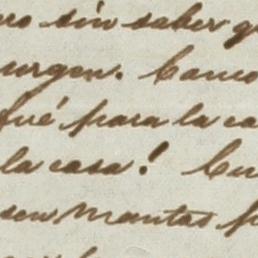 ro sin saber q
urgen. Como
fué para la ca
la casa! Cu
seu mantas p